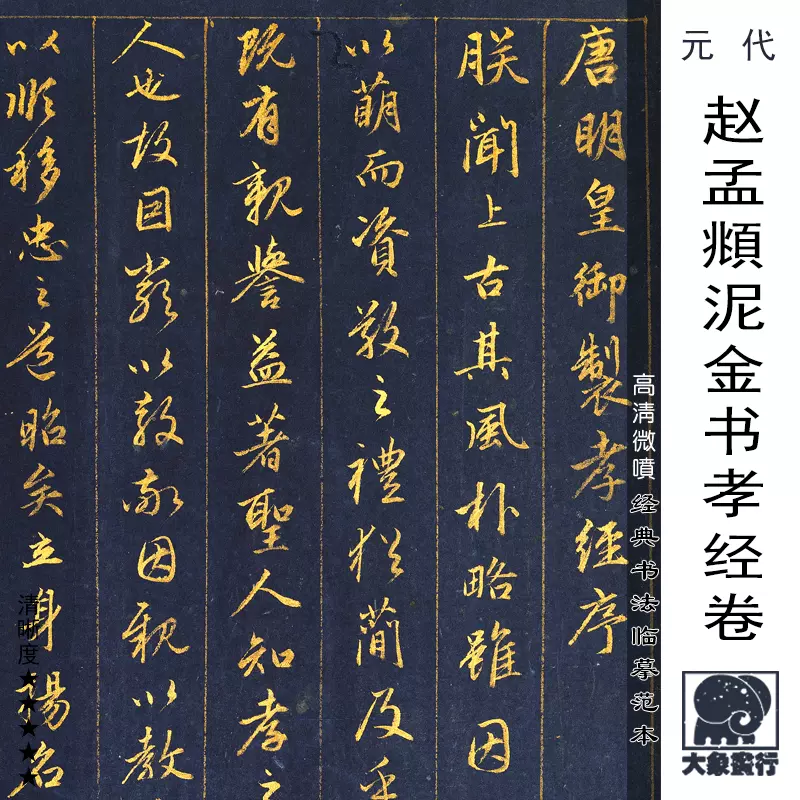 元代
赵孟頫泥金书孝经卷
高清微噴 经典书法临摹范本
唐明皇御製孝經序
朕聞上古其風朴略雖因
以萌而資敬之禮猶簡及乎
既有親譽益著聖人知孝之
人也故因嚴以教敬因親以教
以順移忠之道昭矣立身揚名
清晰度★★★★★